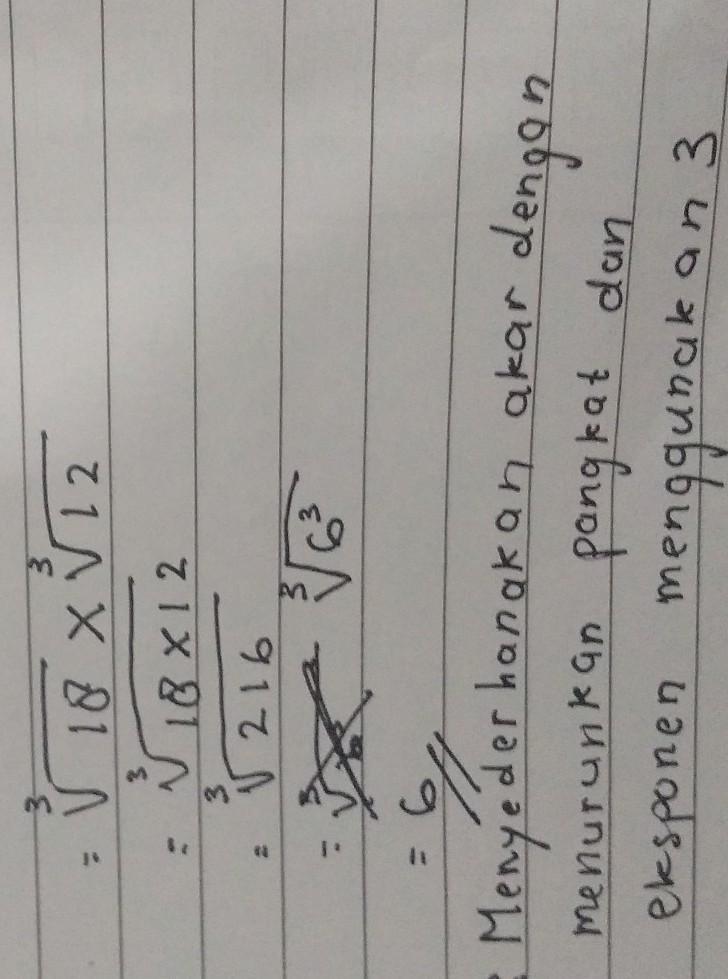 = ³√18 × ³√12
= ³√18×12
= ³√216
= ³√6³
= 6
Menyederhanakan akar dengan
menurunkan pangkat dan
eksponen menggunakan 3